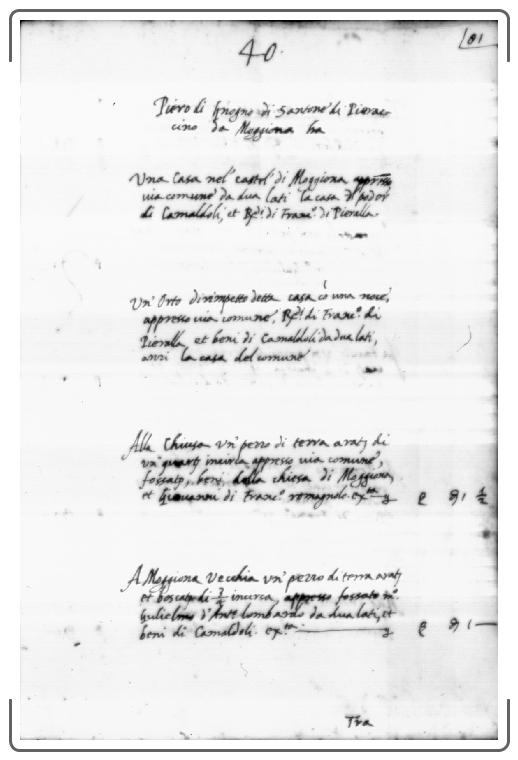 40.
81
Piero di Gregno di Santone di Pierac
cino da Moggiona ha
Una Casa nel castel' di Moggiona appresso
via comune da dua lati la casa di poder
di Camaldoli, et Rede di Franco. di Pieralla
Un' Orto dirimpetto detta casa co una noce,
appresso via comune, Rede di Franco. di
Pieralla, et beni di Camaldoli da dua lati,
anzi la casa del comune
Alla Chiusa un' pezzo di terra arat. di
un' quarto incirca appresso via comune,
fossato, beni della chiesa di Moggiona,
et Giovanni di Franco. romagnolo. exta
1 1/2
A Moggiona Vecchia un' pezzo di terra arat.
et boscata di incirca, appresso fossato mo.
Gulielmo d'Anto lombardo da dua lati, et
beni di Camaldoli. exta
1
Tra